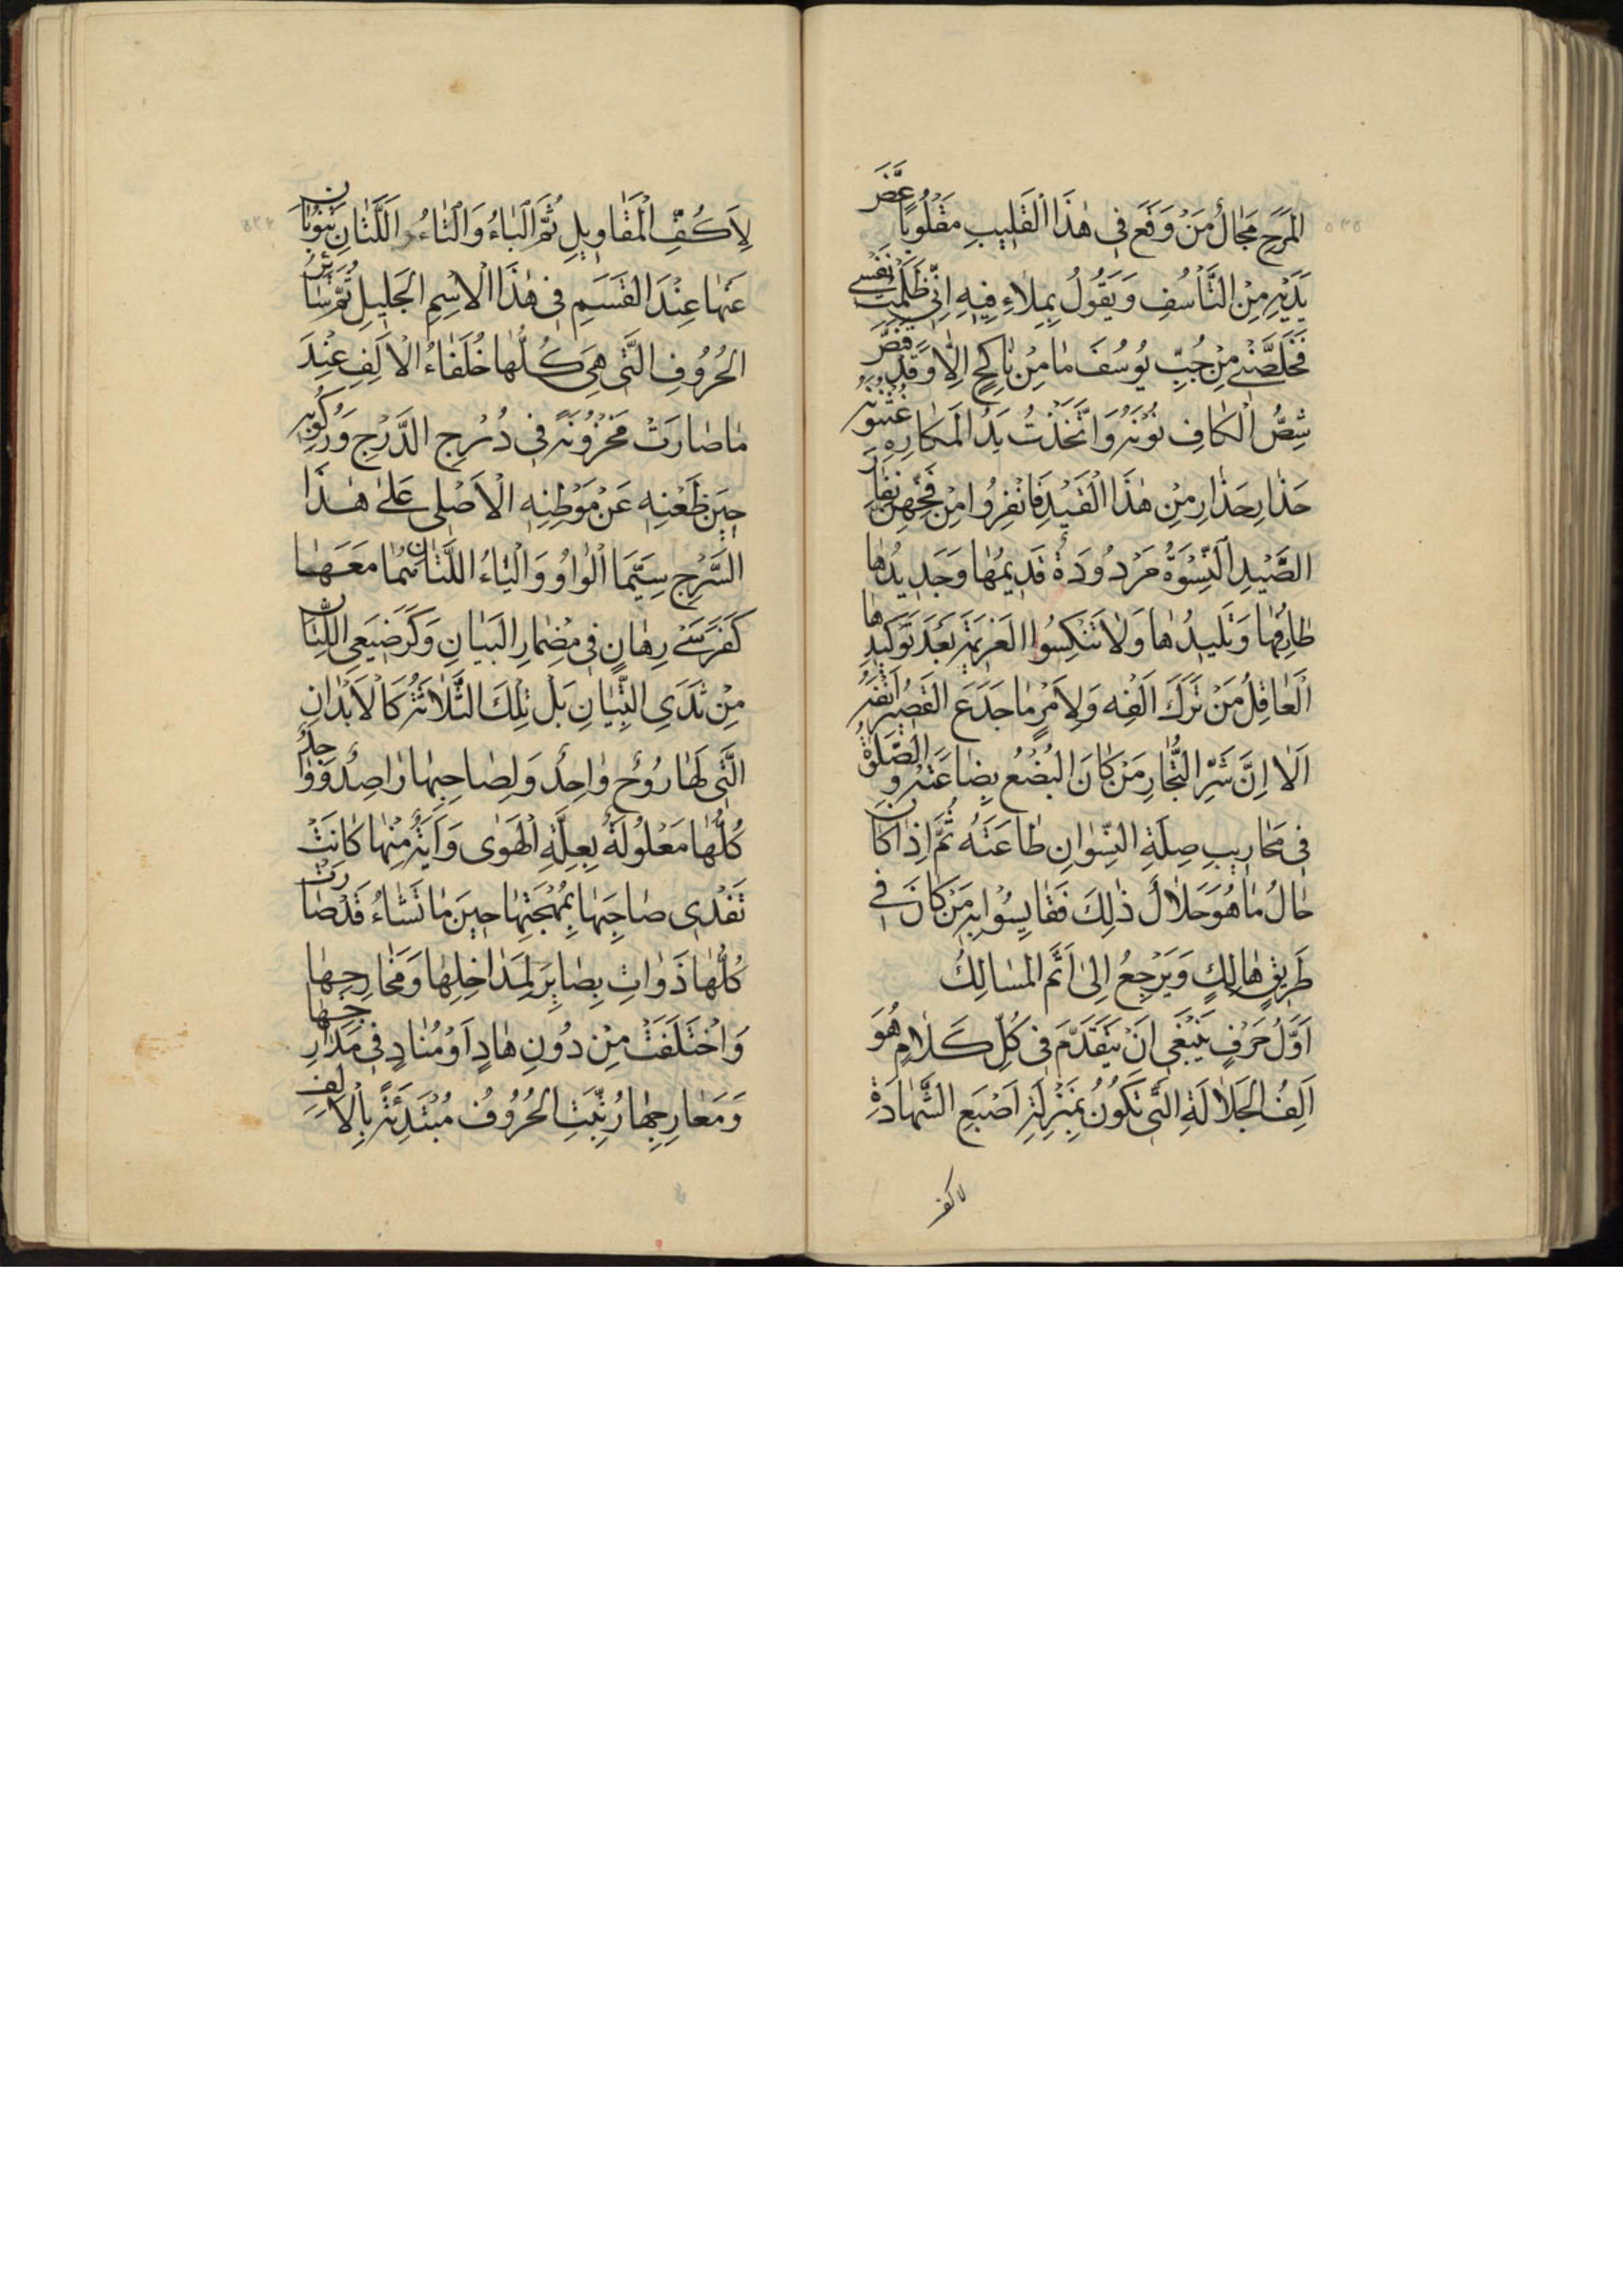 المَرَحِ مَجَالُ مَنْ وَقَعَ فِي هٰذَا الْقَلِيبِ مَقْلُوبًا عَضَّ
يَدَيْهِ مِنَ التَّأَسُّفِ وَيَقُولُ بِمِلَاءِ فِيهِ اِنّي ظَلَمْتُ نَفْسي
فَخَلِّصْنِي مِنْ جُبِّ يُوسُفَ مَا مِنْ نَاكِحٍ اِلَّا وَقَدْ
شِصُّ الْكَافِ نُونَهُ وَاتَّخَذَتْ يَدُ الْمَكَارِهِ عُثْنُونَهُ
حَذَارِ حَذَارِ مِنْ هٰذَا الْقَيْدِ فَانْفِرُوا مِنْ فَخِّهِنَّ نِفَارَ
الصَّيْدِ اَلنِّسْوَةُ مَرْدُودَةٌ قَدِيمُهَا وَجَدِيدُهَا
طَارِفُهَا وَتَلِيدُهَا وَلَا تَنْكِسُوا الْعَزِيمَةَ بَعْدَ تَوْكِيدِهَا
الْعَاقِلُ مَنْ تَرَكَ اَلْفِهِ وَلِاَمْرٍ مَا جَدَعَ الْقَصِيرُ اَنْفَهُ
اَلَا اِنَّ شَرَّ التُّجَّارِ مَنْ كَانَ الْبُضْعُ بِضَاعَتَهُ وَالصَّلٰوةُ
فِي مَحَارِيبِ صِلَةِ النِّسْوَانِ طَاعَتَهُ ثُمَّ اِذَا كَانَ
حَالُ مَا هُوَ حَلَالٌ ذٰلِكَ فَقَايِسُوا بِهِ مَنْ كَانَ فِي
طَرِيقٍ هَالِكٍ وَيَرْجِعُ اِلىٰ اَتَمِّ الْمَسَالِكِ
اَوَّلُ حَرْفٍ يَنْبَغِي اَنْ يَتَقَدَّمَ فِي كُلِّ كَلَامٍ هُوَ
اَلِفُ الْجَلَالَةِ الَّتِي تَكُونُ بِمَنْزِلَةِ اَصْبَعِ الشَّهَادَةِ
لاكف
لِاَكُفِّ الْمَقَاوِيلِ ثُمَّ الْبَاءُ وَالتَّاءُ اللَّتَانِ تَنُوبَانِ
عَنْهَا عِنْدَ الْقَسَمِ فِي هٰذَا الْاِسْمِ الْجَلِيلِ ثُمَّ سَائِرُ
الْحُرُوفِ الَّتِي هِيَ كُلُّهَا خُلَفَاءُ الْاَلِفِ عِنْدَ
مَا صَارَتْ مَخْزُونَةً فِي دُرْجِ الدَّرْجِ وَرُكُوبِهِ
حِينَ ظَعْنِهِ عَنْ مَوْطِنِهِ الْاَصْلِي عَلىٰ هٰذَا
السَّرْجِ سِيَّمَا الْوَاوُ وَالْيَاءُ اللَّتَانِ هُمَا مَعَهَا
كَفَرَسَيْ رِهَانٍ فِي مِضْمَارِ الْبَيَانِ وَكَرَضِيعَيِ اللِّبَانِ
مِنْ ثَدَيِ التِّبْيَانِ بَلْ تِلْكَ الثَّلَاثَةُ كَالْاَبْدَانِ
الَّتِي لَهَا رُوحٌ وَاحِدٌ وَلِصَاحِبِهَا رَاصِدٌ وَوَاجِدٌ
كُلُّهَا مَعْلُولَةٌ بِعِلَّةِ الْهَوىٰ وَاَيَّةٌ مِنْهَا كَانَتْ
تَفْدِي صَاحِبَهَا بِمُهْجَتِهَا حِينَ مَا تَشَاءُ قَدْ صَارَتْ
كُلُّهَا ذَوَاتِ بِصَايِرَ لِمَدَاخِلِهَا وَمَخَارِجِهَا
وَاخْتَلَفَتْ مِنْ دُونِ هَادٍ اَوْ مُنَادٍ فِي مَدَارِجِهَا
وَمَعَارِجِهَا رُتِّبَتِ الْحُرُوفُ مُبْتَدِئَةً بِالْاَلِفِ